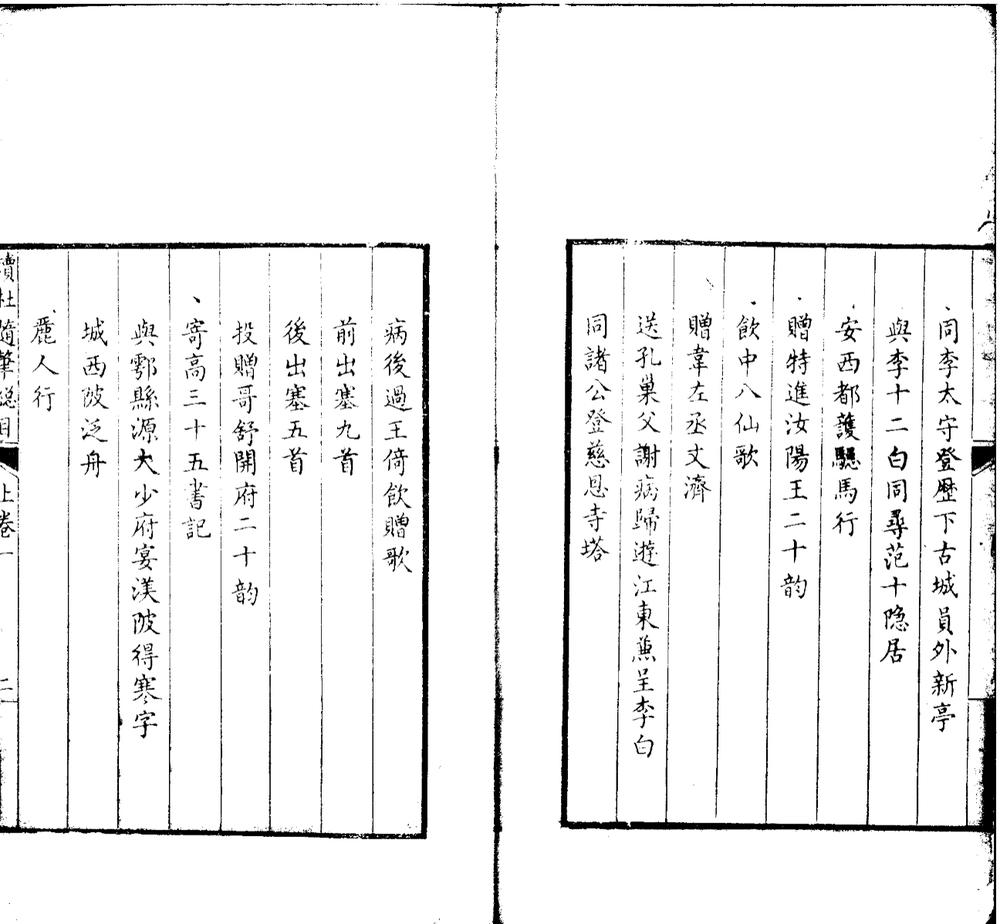 同李太守登歷下古城員外新亭
與李十二白同尋范十隱居
安西都護驄馬行
贈特進汝陽王二十韵
飲中八仙歌
贈韋左丞丈濟
送孔巢父謝病歸遊江東蒹呈李白
同諸公登慈恩寺塔
病後過王倚飲贈歌
前出塞九首
後出塞五首
投贈哥舒開府二十韵
寄高三十五書記
與鄠縣源大少府宴渼陂得寒字
城西陂泛舟
麗人行
讀杜隨筆總目 上卷一 二